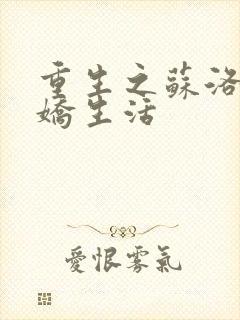 重生之蘇洛
嬌生活
愛恨霧氣